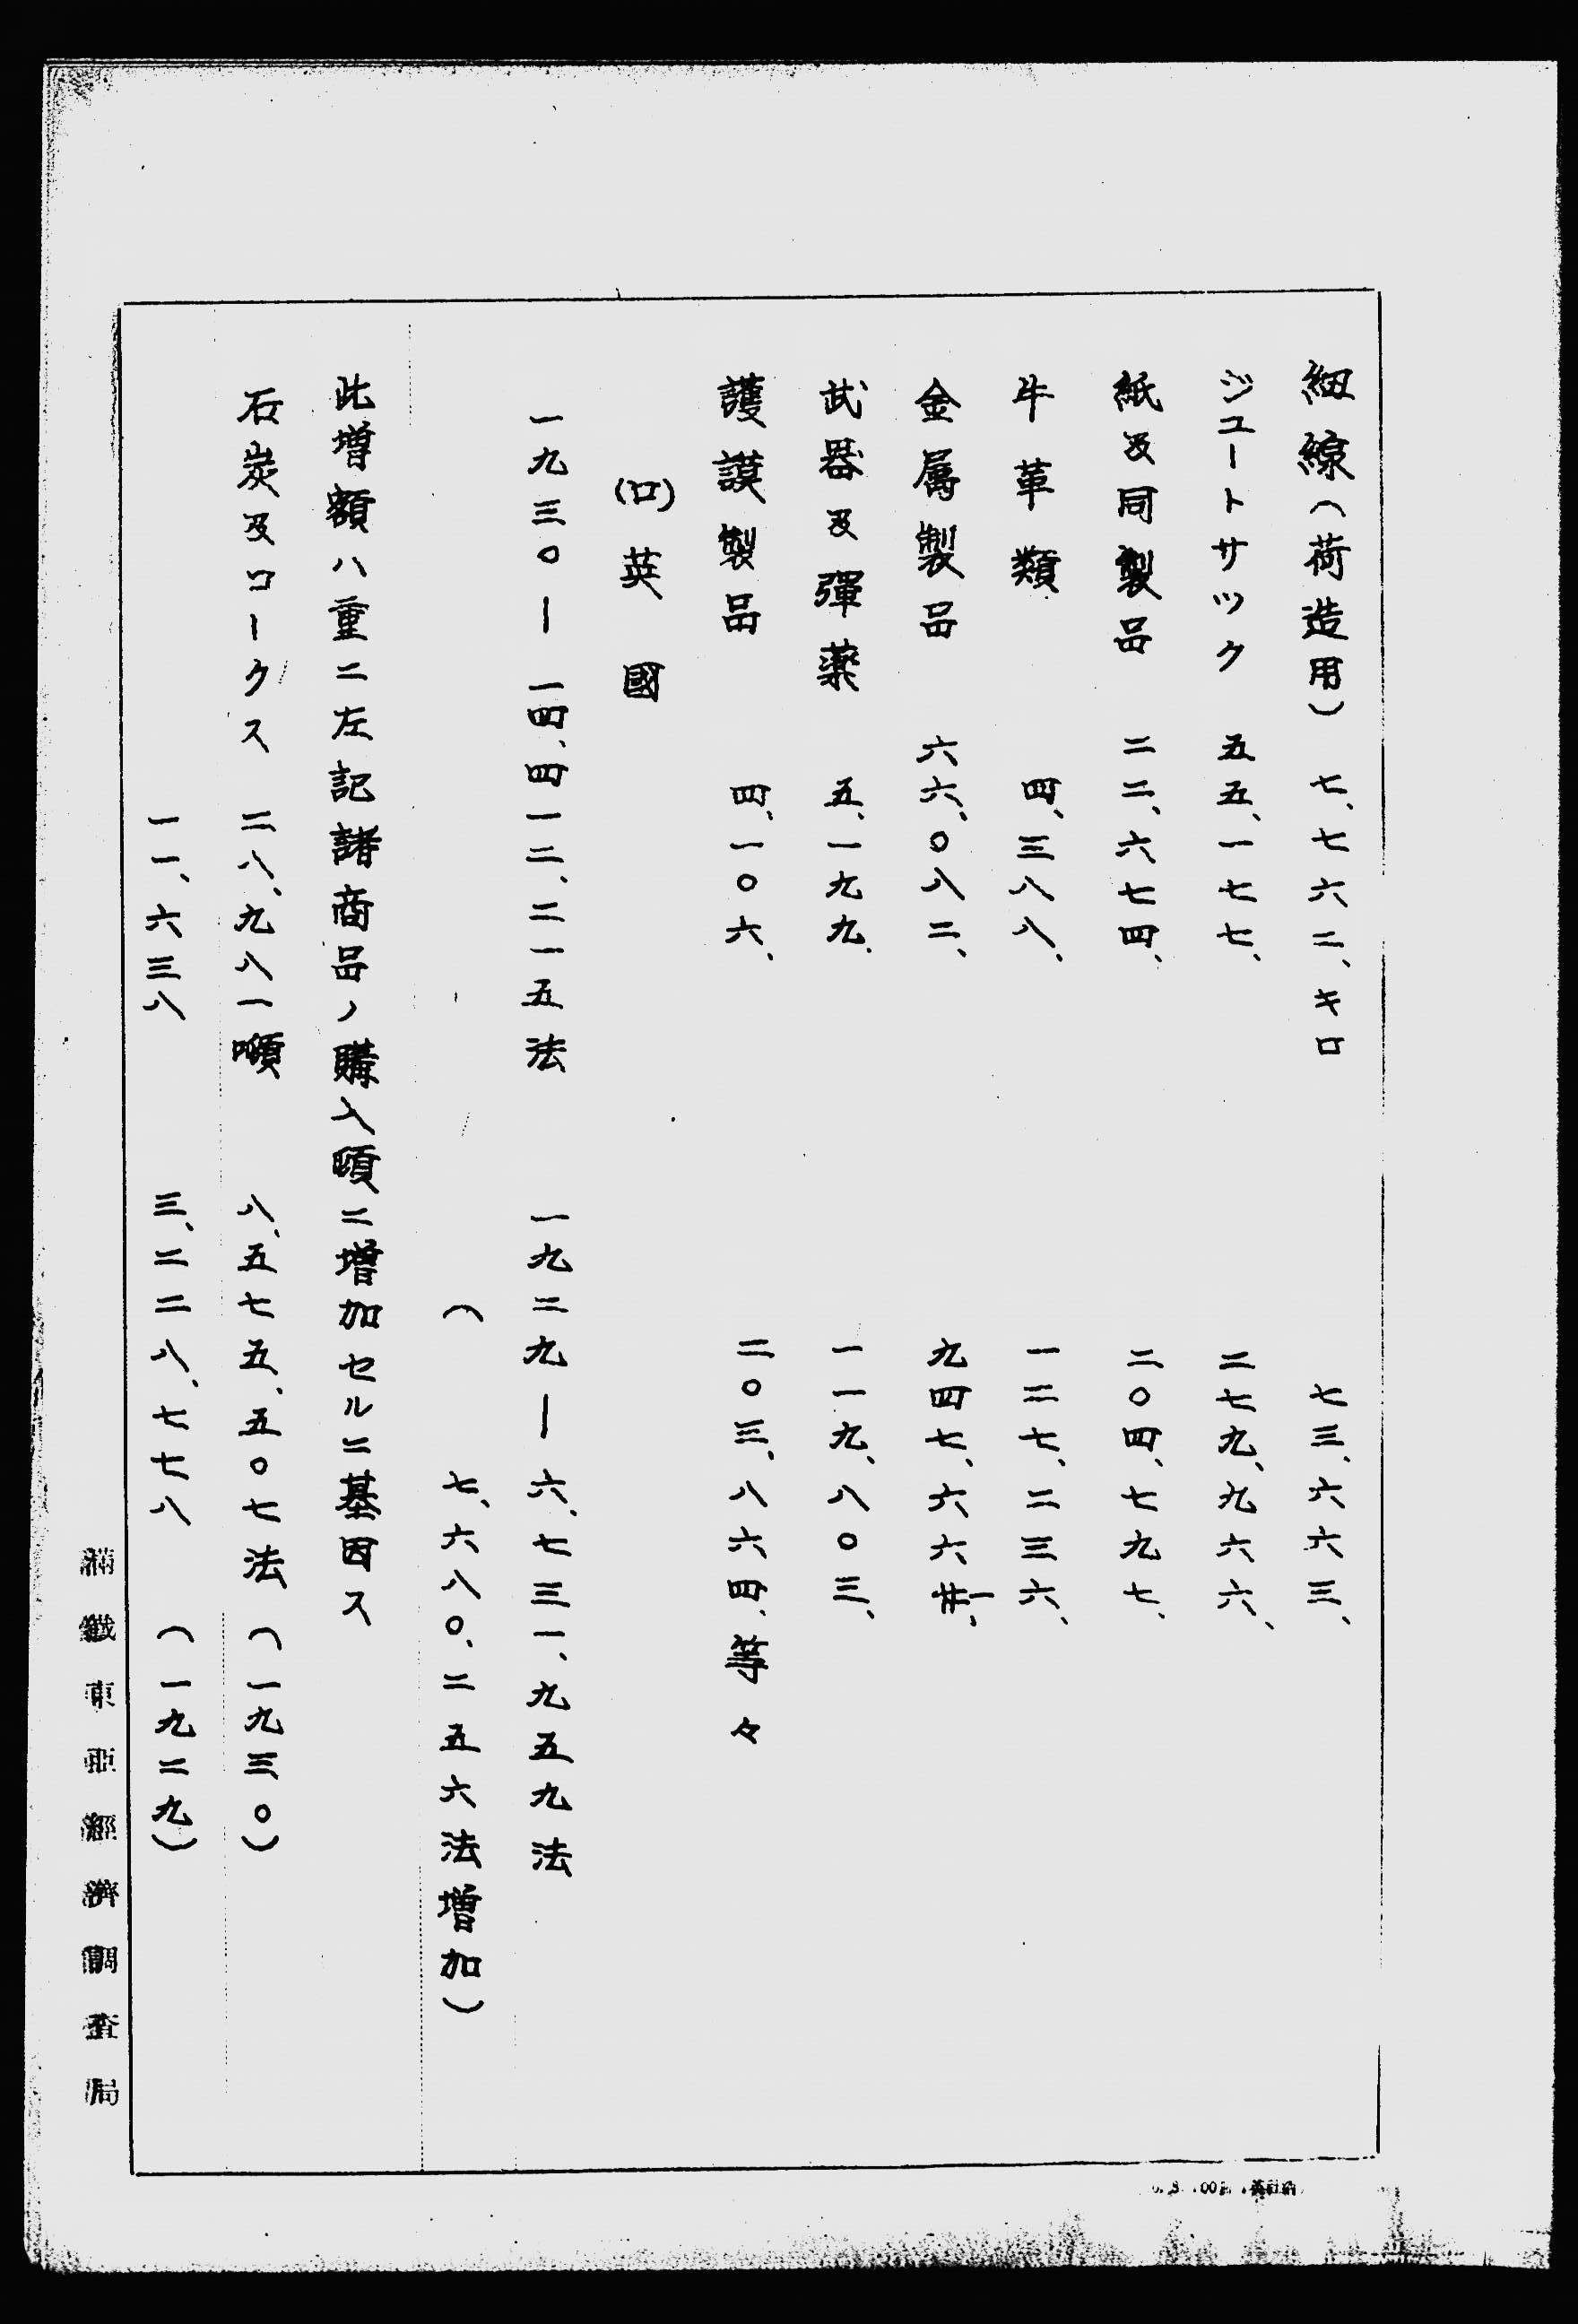 細線(荷造用) 七、七六二、キロ 七三、六六三、
ジユートサツク 五五、一七七、 二七九、九六六、
紙及同製品 二二、六七四、 二〇四、七九七、
牛革類 四、三八八、 一三七、二三六、
金属製品 六六、〇八二、 九四七、六六一、
武器及彈薬 五、一九九、 一一九、八〇三、
護謨製品 四、一〇六、 二〇三、八六四、等々
(ロ)英國
一九三〇ー一四、四一二、二一五法 一九二九ー六、七三一、九五九法
( 七、六八〇、二五六法増加)
此増額ハ重ニ左記諸商品ノ購入頓ニ増加セルニ基因ス
石炭及コークス 二八、九八一噸 八、五七五、五〇七法 (一九三〇)
一一、六三八 三、二二八、七七八 (一九二九)
滿鐵東亜經濟調査局